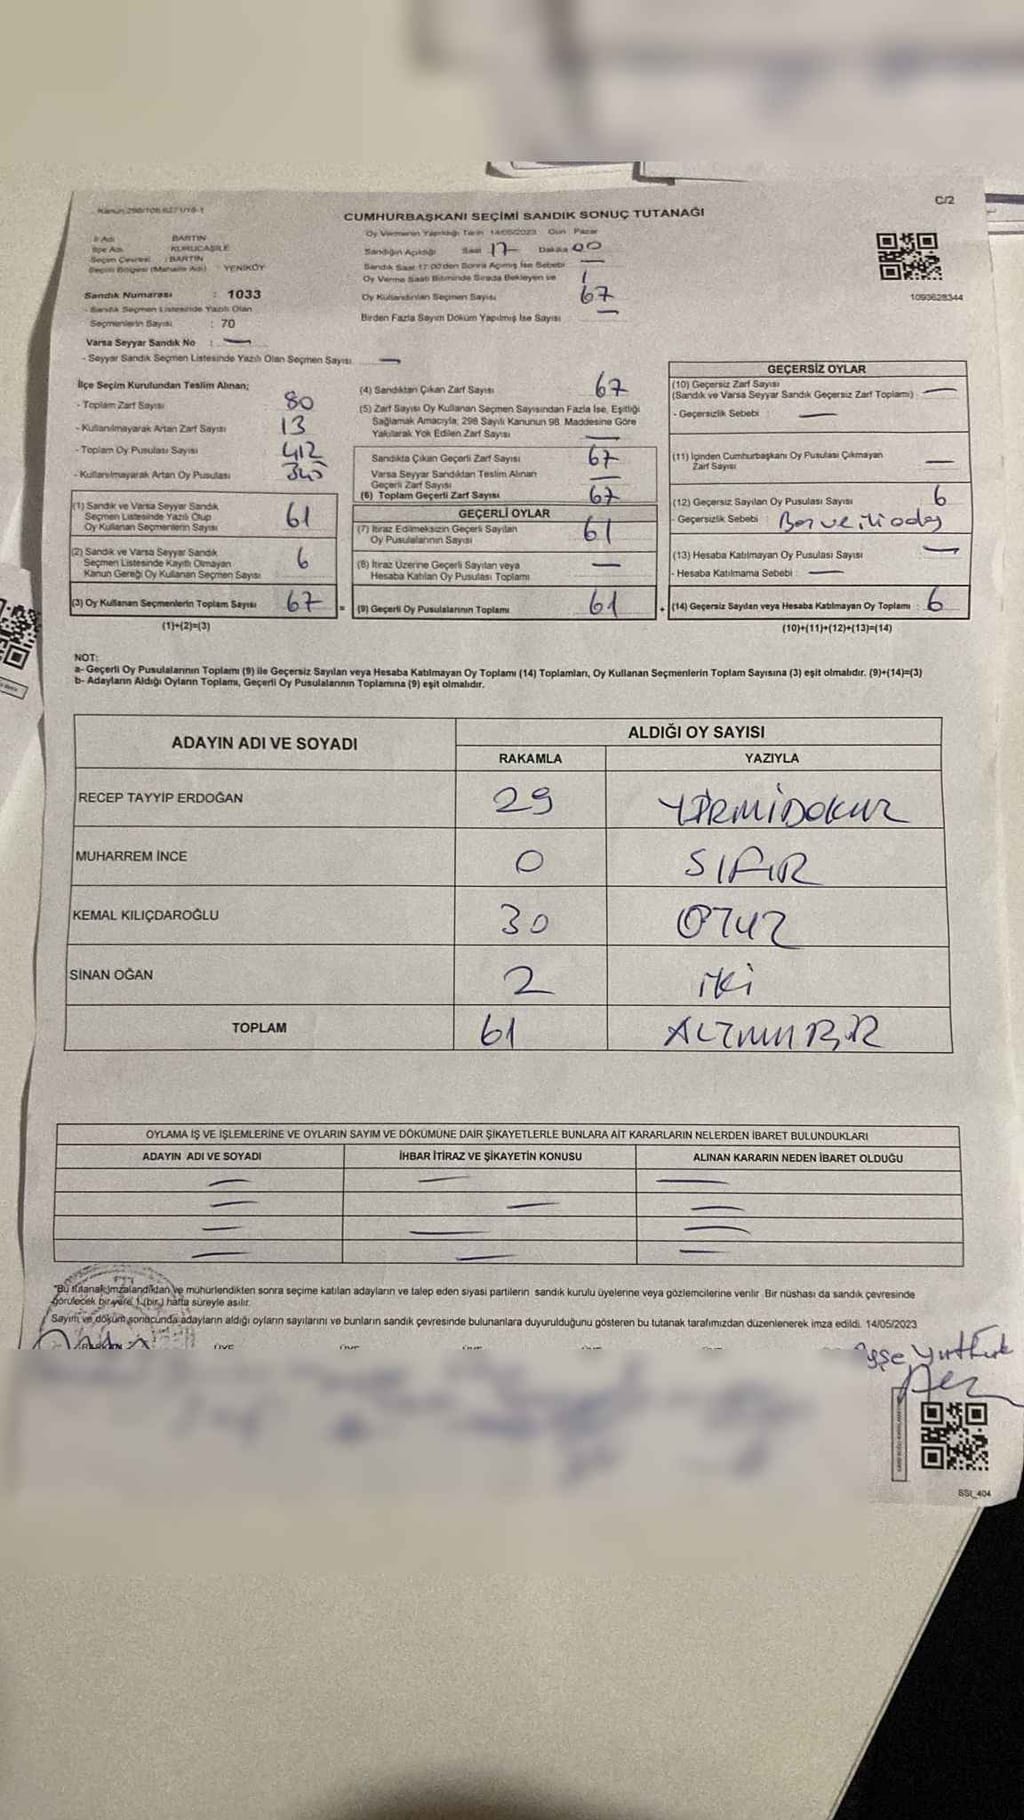 Kanun:298/106,627 U/16-1
C/2
CUMHURBAŞKANI SEÇİMİ SANDIK SONUÇ TUTANAĞI
İl Adı BARTIN
İlçe Adı KURUCAŞİLE
Seçim Çevresi : BARTIN
Seçim Bölgesi (Mahalle Adı) : YENİKÖY
Sandık Numarası : 1033
- Sandık Seçmen Listesinde Yazılı Olan
Seçmenlerin Sayısı : 70
Varsa Seyyar Sandık No : —
- Seyyar Sandık Seçmen Listesinde Yazılı Olan Seçmen Sayısı —
Oy Vermenin Yapıldığı Tarih 14/05/2023 Gün Pazar
Sandığın Açıldığı Saat 17 Dakika 00
Sandık Saat 17:00'den Sonra Açılmış İse Sebebi —
Oy Verme Saati Bitiminde Sırada Bekleyen ve
Oy Kullandırılan Seçmen Sayısı 67
Birden Fazla Sayım Döküm Yapılmış İse Sayısı —
1093628344
İlçe Seçim Kurulundan Teslim Alınan;
- Toplam Zarf Sayısı 80
- Kullanılmayarak Artan Zarf Sayısı 13
- Toplam Oy Pusulası Sayısı 412
- Kullanılmayarak Artan Oy Pusulası 345
(1) Sandık ve Varsa Seyyar Sandık
Seçmen Listesinde Yazılı Olup
Oy Kullanan Seçmenlerin Sayısı 61
(2) Sandık ve Varsa Seyyar Sandık
Seçmen Listesinde Kayıtlı Olmayan
Kanun Gereği Oy Kullanan Seçmen Sayısı 6
(3) Oy Kullanan Seçmenlerin Toplam Sayısı 67 =
(1)+(2)=(3)
(4) Sandıktan Çıkan Zarf Sayısı 67
(5) Zarf Sayısı Oy Kullanan Seçmen Sayısından Fazla İse, Eşitliği
Sağlamak Amacıyla; 298 Sayılı Kanunun 98. Maddesine Göre
Yakılarak Yok Edilen Zarf Sayısı —
Sandıkta Çıkan Geçerli Zarf Sayısı 67
Varsa Seyyar Sandıktan Teslim Alınan
Geçerli Zarf Sayısı —
(6) Toplam Geçerli Zarf Sayısı 67
GEÇERLİ OYLAR
(7) İtiraz Edilmeksizin Geçerli Sayılan
Oy Pusulalarının Sayısı 61
(8) İtiraz Üzerine Geçerli Sayılan veya
Hesaba Katılan Oy Pusulası Toplamı —
(9) Geçerli Oy Pusulalarının Toplamı 61 +
GEÇERSİZ OYLAR
(10) Geçersiz Zarf Sayısı
(Sandık ve Varsa Seyyar Sandık Geçersiz Zarf Toplamı) : —
- Geçersizlik Sebebi —
(11) İçinden Cumhurbaşkanı Oy Pusulası Çıkmayan
Zarf Sayısı —
(12) Geçersiz Sayılan Oy Pusulası Sayısı 6
- Geçersizlik Sebebi :
(13) Hesaba Katılmayan Oy Pusulası Sayısı —
- Hesaba Katılmama Sebebi : —
(14) Geçersiz Sayılan veya Hesaba Katılmayan Oy Toplamı : 6
(10)+(11)+(12)+(13)=(14)
NOT:
a- Geçerli Oy Pusulalarının Toplamı (9) ile Geçersiz Sayılan veya Hesaba Katılmayan Oy Toplamı (14) Toplamları, Oy Kullanan Seçmenlerin Toplam Sayısına (3) eşit olmalıdır. (9)+(14)=(3)
b- Adayların Aldığı Oyların Toplamı, Geçerli Oy Pusulalarının Toplamına (9) eşit olmalıdır.
ADAYIN ADI VE SOYADI
ALDIĞI OY SAYISI
RAKAMLA YAZIYLA
RECEP TAYYİP ERDOĞAN 29 YİRMİDOKUZ
MUHARREM İNCE 0 SIFIR
KEMAL KILIÇDAROĞLU 30 OTUZ
SİNAN OĞAN 2 iki
TOPLAM 61 ALTMIŞ BİR
OYLAMA İŞ VE İŞLEMLERİNE VE OYLARIN SAYIM VE DÖKÜMÜNE DAİR ŞİKAYETLERLE BUNLARA AİT KARARLARIN NELERDEN İBARET BULUNDUKLARI
ADAYIN ADI VE SOYADI İHBAR İTİRAZ VE ŞİKAYETİN KONUSU ALINAN KARARIN NEDEN İBARET OLDUĞU
— — —
— — —
— — —
— — —
"Bu tutanak imzalandıktan ve mühürlendikten sonra seçime katılan adayların ve talep eden siyasi partilerin sandık kurulu üyelerine veya gözlemcilerine verilir. Bir nüshası da sandık çevresinde
görülecek bir yere 1 (bir) hafta süreyle asılır.
Sayım ve döküm sonucunda adayların aldığı oyların sayılarını ve bunların sandık çevresinde bulunanlara duyurulduğunu gösteren bu tutanak tarafımızdan düzenlenerek imza edildi. 14/05/2023
SSI_404